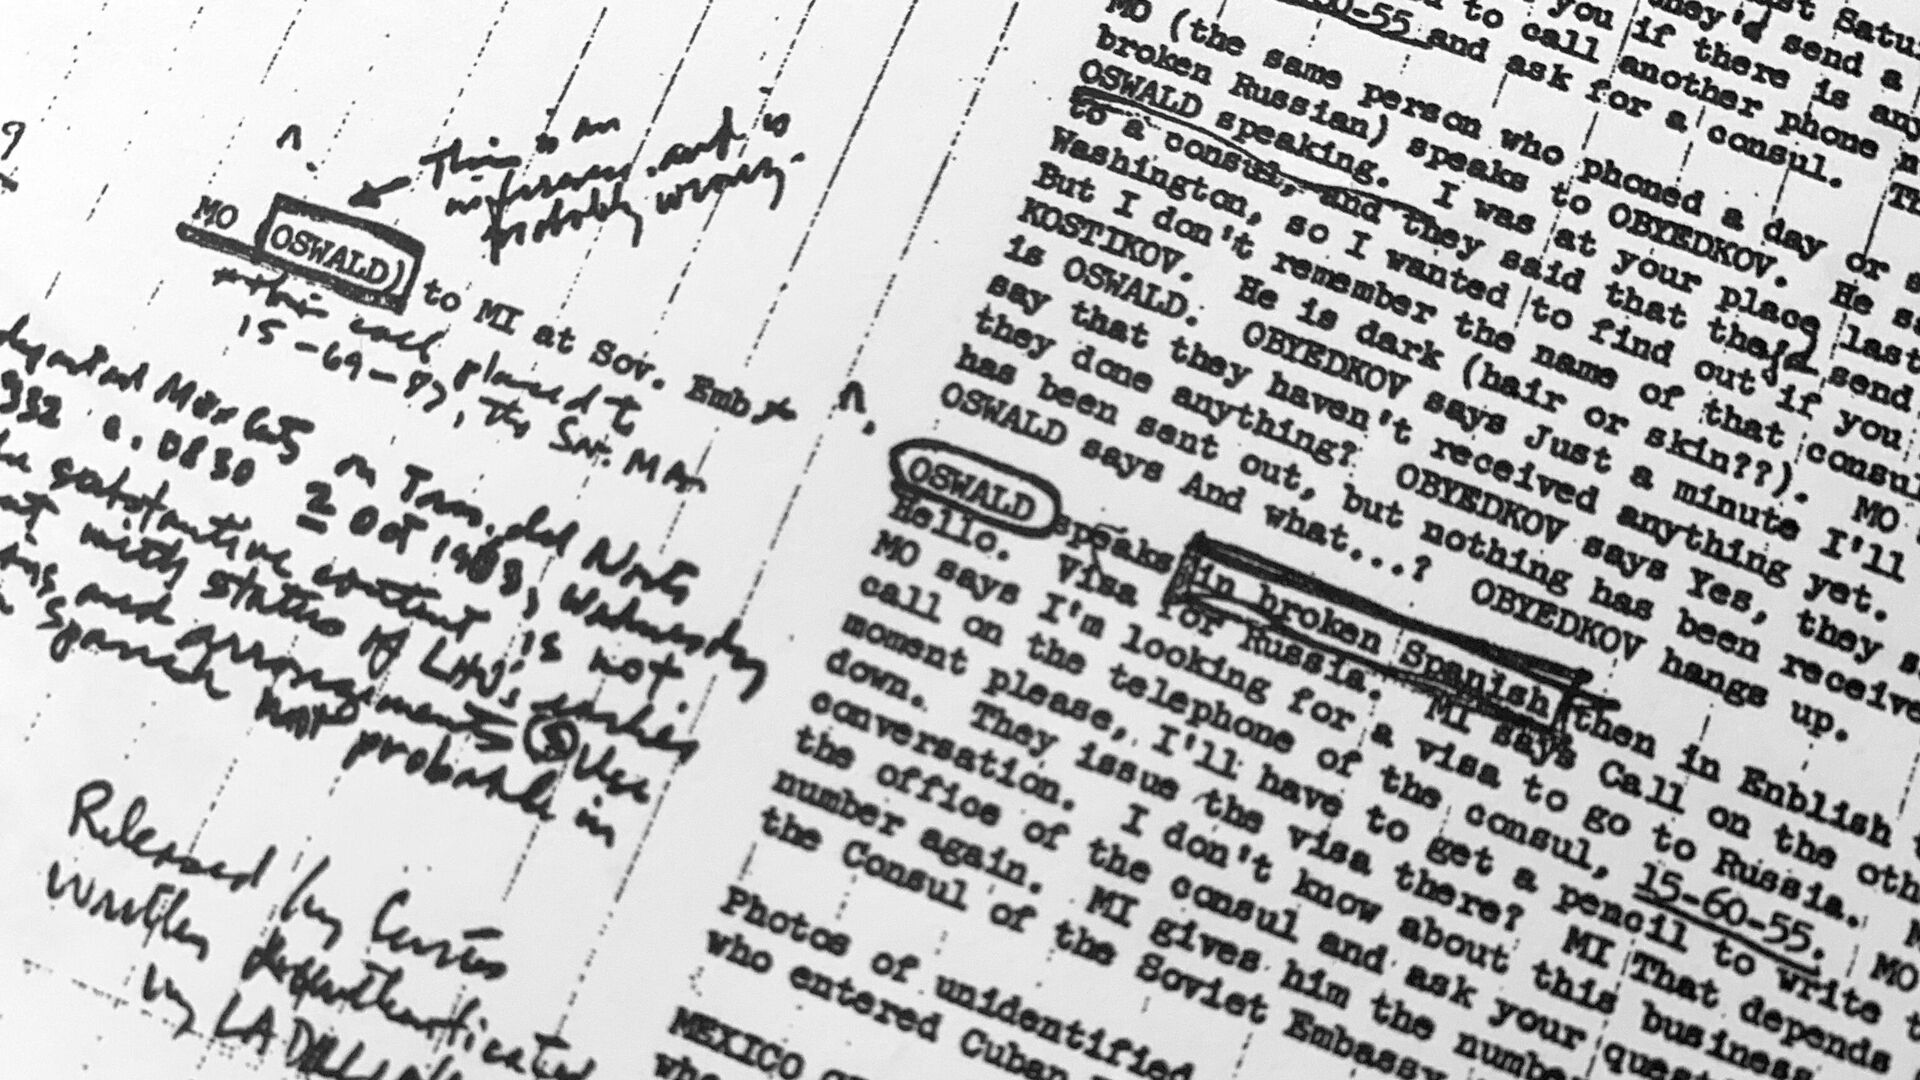 This is an
inference and is
probably wrong.
MO (OSWALD) to MI at Sov. Emb
this call placed to
15-69-87, the Sov. MA
departed Mex City on Trans. del Norte
332 a. 0830 2 Oct 1963, Wednesday
substantive content is not
with status of LHO's
arrangements Use
Spanish not probable in
Released by Curtis
written
by LAD
60-55 and ask for a consul.
MO (the same person who phoned a day or
broken Russian) speaks to OBYEDKOV. He
OSWALD speaking. I was at your place last
to a consul, and they said that they'd send
Washington, so I wanted to find out if you
But I don't remember the name of that consul
KOSTIKOV. He is dark (hair or skin??). MO
is OSWALD. OBYEDKOV says Just a minute I'll
say that they haven't received anything yet.
they done anything? OBYEDKOV says Yes, they
has been sent out, but nothing has been receive
OSWALD says And what...? OBYEDKOV hangs up.
OSWALD speaks in broken Spanish then in Enblish
Hello. Visa for Russia. MI says Call on the oth
MO says I'm looking for a visa to go to Russia.
call on the telephone of the consul, 15-60-55. MO
moment please, I'll have to get a pencil to write
down. They issue the visa there? MI That depends
conversation. I don't know about this business
the office of the consul and ask your quest
number again. MI gives him the numbe
the Consul of the Soviet Embassy
Photos of unidentified
who entered Cuban
MEXICO